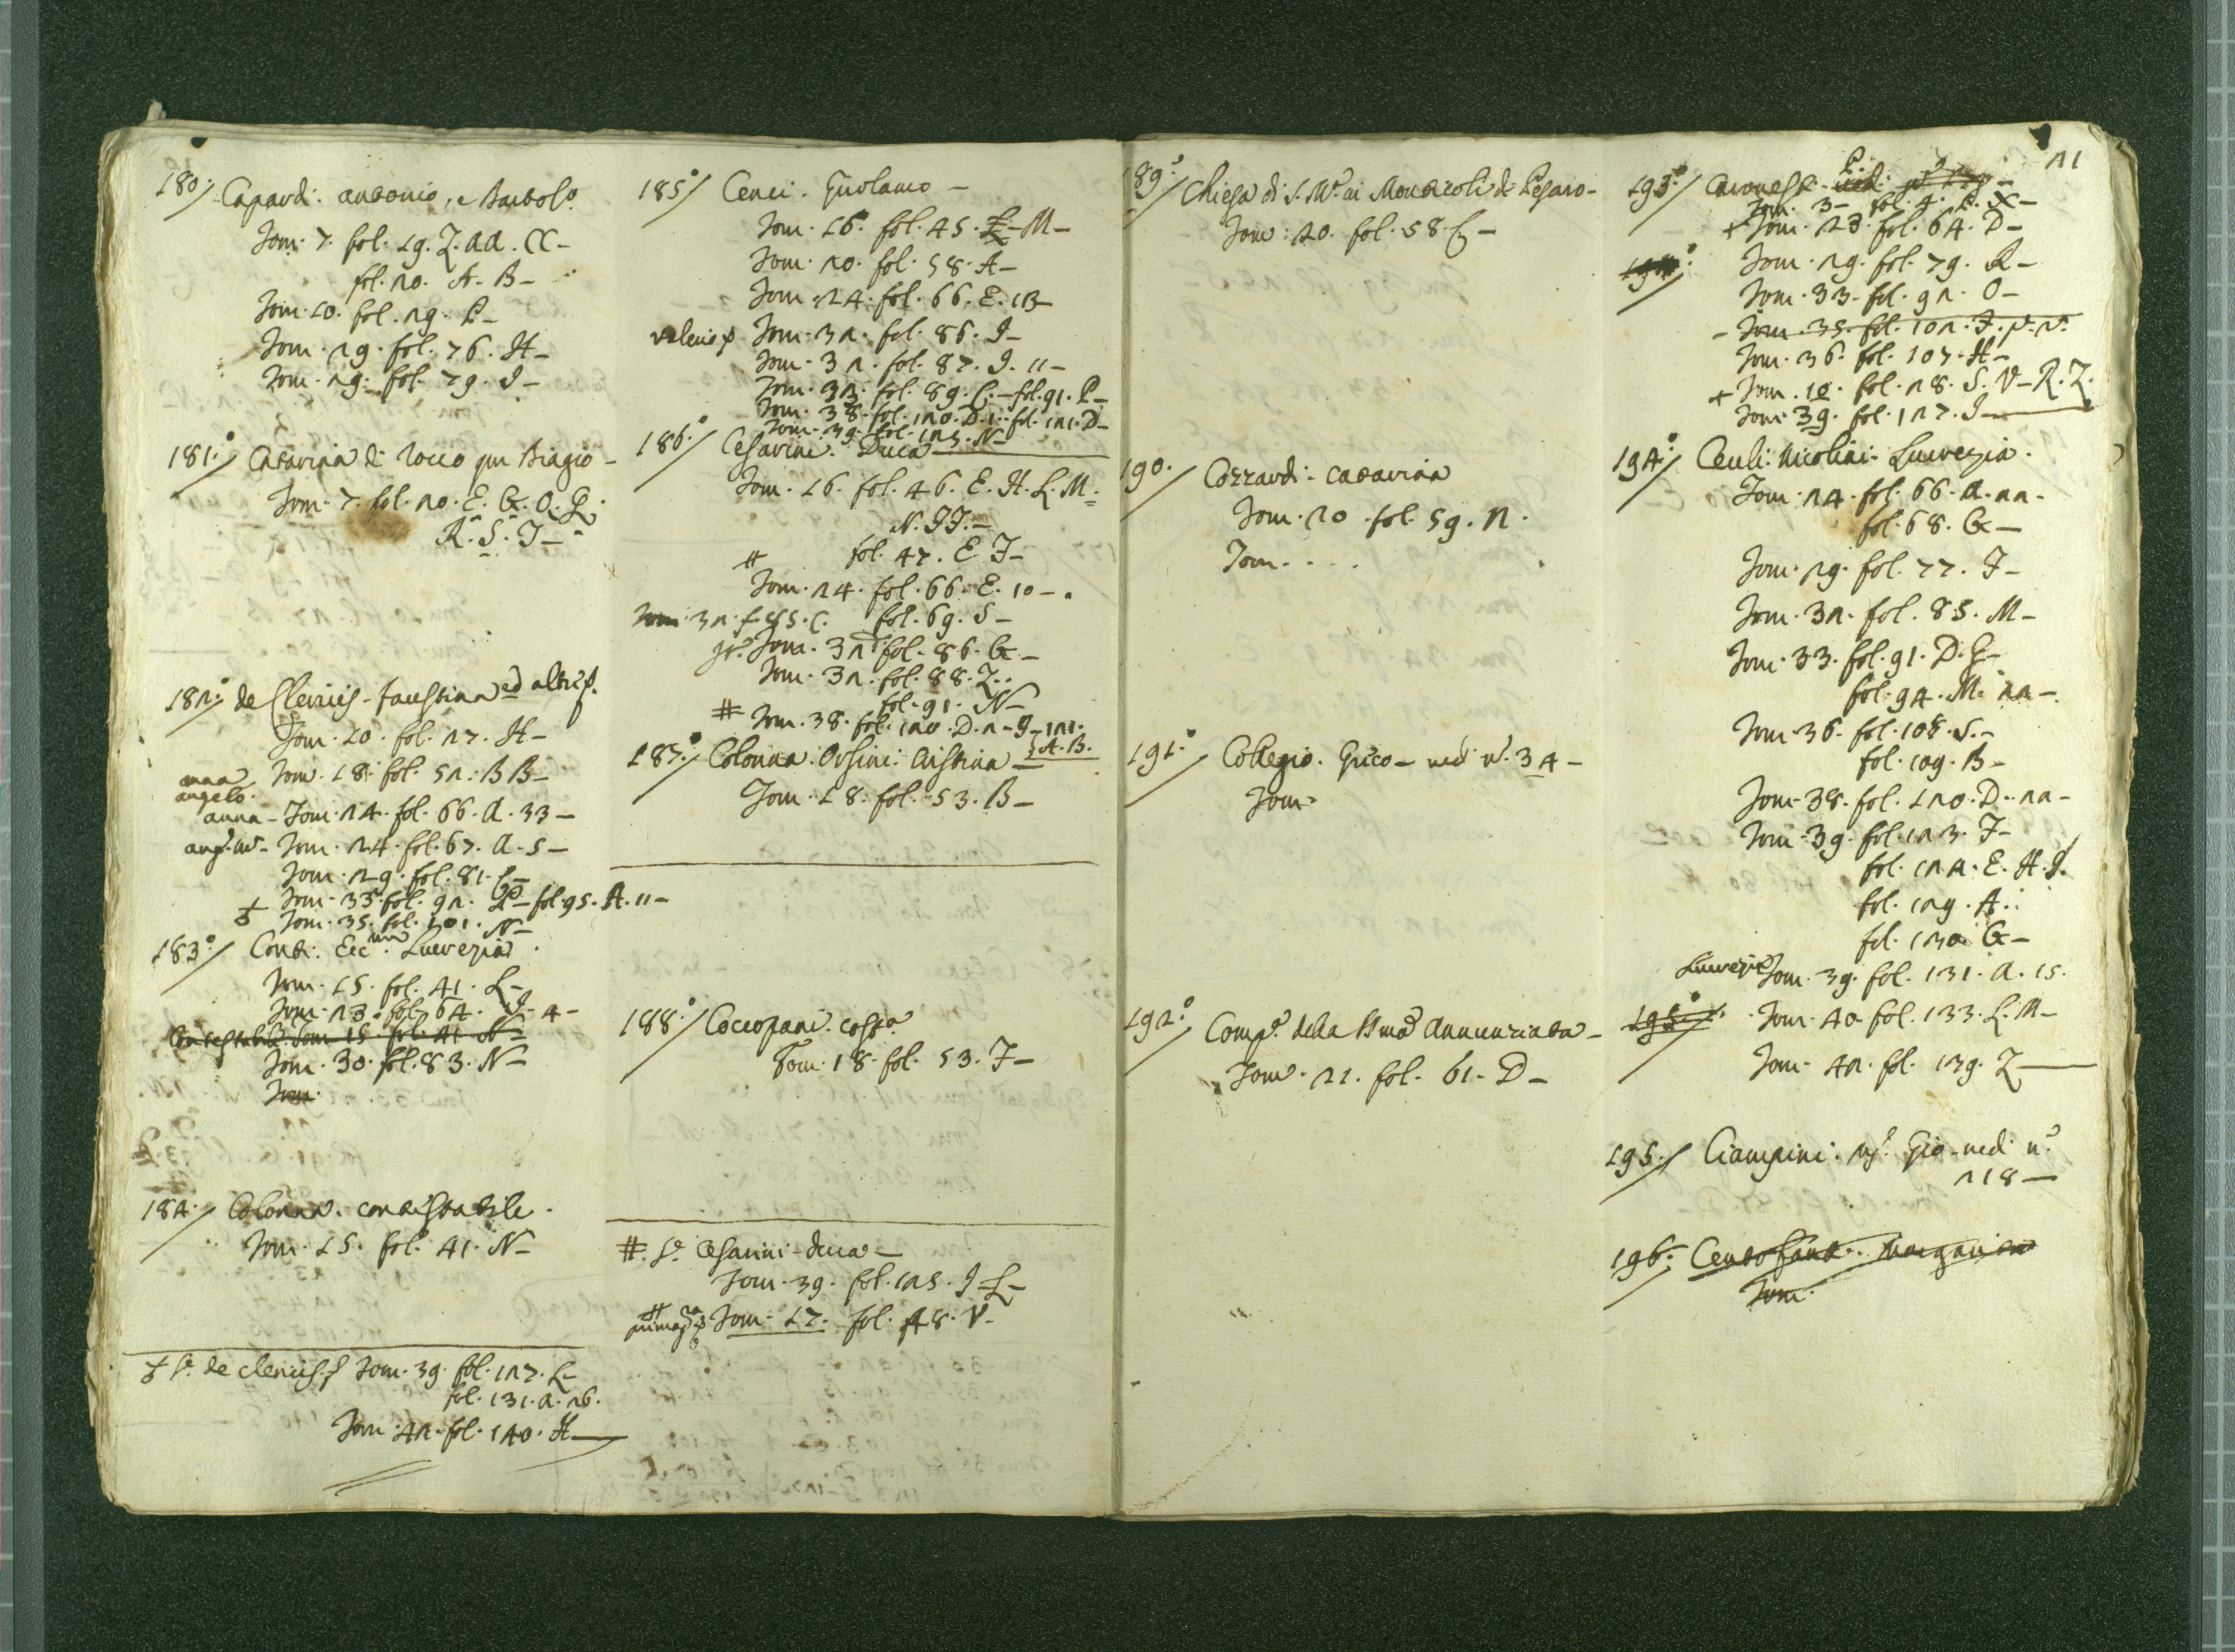 180. Capardi. antonio, e Bartolo.
Tom. 7. fol. 19. Z. aa. CC –
fol. 20. A. B –
Tom. 10. fol. 29. P –
Tom. 29. fol. 76. H –
Tom. 29. fol. 79. I –
181. Catarina di Rocco qm Biagio –
Tom. 7. fol. 20. E. G. O. Q.
R. S. T –
182. de Clericis – faustina ed altri
Tom. 10. fol. 27. H –
anna
angelo.
Tom. 18. fol. 52. BB –
anna – Tom. 24. fol. 66. a. 33 –
Tom. 24. fol. 67. a. 5 –
Tom. 29. fol. 81. C –
Tom. 33. fol. 92. – fol. 95. A. 11 –
Tom. 35. fol. 101. N –
183. Conti. Ecc.ma Lucrezia.
Tom. 15. fol. 41. L –
Tom. 23. fol. 64. I. 4 –
Contestabile. Tom. 15. fol. 41. N –
Tom. 30. fol. 83. N –
Tom.
184. Colonna. contestabile.
Tom. 15. fol. 41. N –
de clericis Tom. 39. fol. 127. L –
fol. 131. a. 26.
Tom. 42. fol. 140. H –
185. Cenci. Girolamo –
Tom. 16. fol. 45. L – M –
Tom. 20. fol. 58. A –
Tom. 24. fol. 66. E. 13 –
Tom. 32. fol. 86. I –
Tom. 32. fol. 87. I. 11 –
Tom. 32. fol. 89. C. – fol. 91. P –
Tom. 38. fol. 120. D. 1. – fol. 121. D –
Tom. 39. fol. 125. N –
186. Cesarini. Duca –
Tom. 16. fol. 46. E. H. L. M.
N. II. –
# fol. 47. E I –
Tom. 24. fol. 66. E. 10 –
Tom. 32. f. 85. C. fol. 69. S –
Tom. 32. fol. 86. G –
Tom. 32. fol. 88. Z.
fol. 91. N –
# Tom. 38. fol. 120. D. 2 – I – 121.
A. B.
187. Colonna. Orsini. Cristina –
Tom. 18. fol. 53. B –
188. Coccopani.
Tom. 18. fol. 53. I –
#. Cesarini – duca –
Tom. 39. fol. 125. I – L –
# Tom. 17. fol. 48. V –
189. Chiesa di S. M.a ai Monticoli di Pesaro –
Tom. 20. fol. 58. C –
190. Cozzardi. catarina
Tom. 20. fol. 59. N.
Tom. . . .
191. Collegio. Greco – vedi n.o 34 –
Tom.
192. Comp.a della SSma Annunziata –
Tom. 21. fol. 61. D –
21
193.
Tom. 3 – fol. 4. P. X –
+ Tom. 23. fol. 64. D –
194. Tom. 29. fol. 79. R –
Tom. 33. fol. 92. O –
– Tom. 35. fol. 102. I.
Tom. 36. fol. 107. H –
+ Tom. 10. fol. 28. S. V – R. Z.
Tom. 39. fol. 127. I –
194. Ceuli. Nicolini. Lucrezia.
Tom. 24. fol. 66. a. 22 –
fol. 68. G –
Tom. 29. fol. 77. I –
Tom. 32. fol. 85. M –
Tom. 33. fol. 91. D. G –
fol. 94. M. 22 –
Tom. 36. fol. 108. S –
fol. 109. B –
Tom. 38. fol. 120. D. 22 –
Tom. 39. fol. 123. I –
fol. 124. E. H. I.
fol. 129. A.
fol. 130. G –
Lucrezia Tom. 39. fol. 131. a. 15.
195. Tom. 40. fol. 133. L. M –
Tom. 42. fol. 139. Z –
195. Ciampini. Gio. vedi n.o
218 –
196.
Tom.